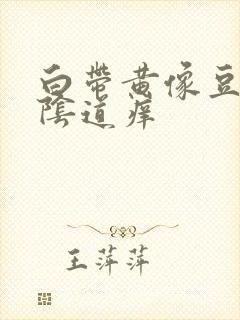 白带黄像豆
阴道痒
王萍萍